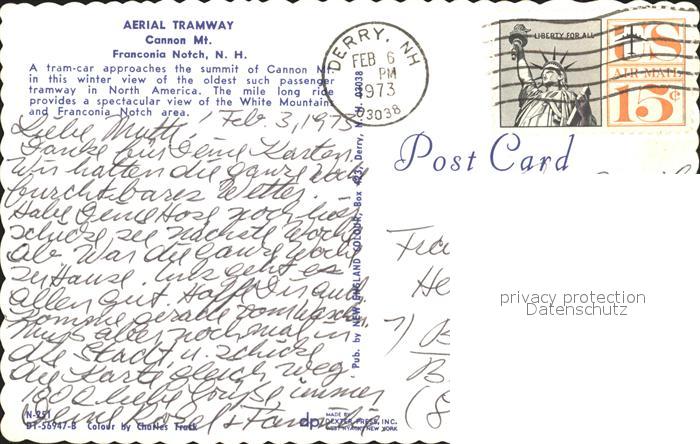 AERIAL TRAMWAY
Cannon Mt.
Franconia Notch, N. H.
A tram-car approaches the summit of Cannon Mt.
in this winter view of the oldest such passenger
tramway in North America. The mile long ride
provides a spectacular view of the White Mountains
and Franconia Notch area.
Liebe Mutti, Feb. 3, 1973
Danke für Deine Karten.
Wir hatten die ganze
furchtbares Wetter.
Habe Deine Hose noch hier
schicke sie nächste Woche
ab. War die ganze Woche
zu Hause. Uns geht es
allen gut. Hoffe Dir auch
Komme gerade vom
Muss aber nochmal in
die Stadt u. schicke
die Karte gleich weg.
1000 liebe Grüße immer
Deine Rosel & Family
N-251
DT-56947-B Colour by Charles Trask
Pub. by NEW ENGLAND COLOUR, Box 423, Derry, N. H. 03038
dp MADE BY
DEXTER PRESS, INC.
WEST NYACK, NEW YORK
DERRY, NH
FEB 6
PM
1973
03038
LIBERTY FOR ALL
US
AIR MAIL
15¢
Post Card
privacy protection
Datenschutz